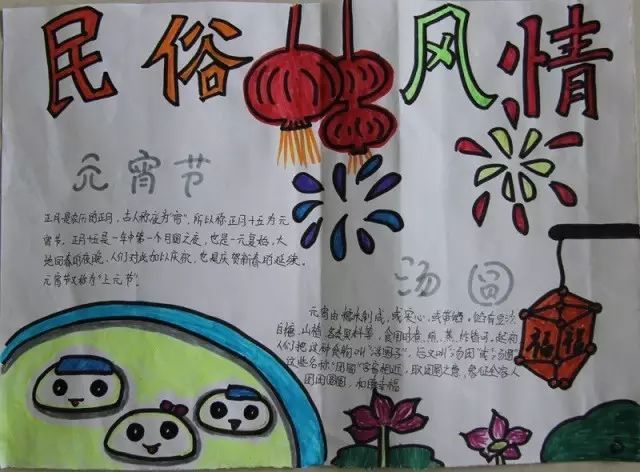 民俗风情
元宵节
正月是农历的元月，古人称夜为“宵”，所以称正月十五为元
宵节。正月十五是一年中第一个月圆之夜，也是一元复始，大
地回春的夜晚，人们对此加以庆祝，也是庆贺新春的延续。
元宵节又称为“上元节”
汤圆
元宵由糯米制成，或实心，或带馅。馅有豆沙
白糖、山楂、各类果料等，食用时煮、煎、蒸、炸皆可。起初
人们把这种食物叫“浮圆子”，后又叫“汤团”或“汤圆”
这些名称“团圆”字音相近，取团圆之意，象征全家人
团团圆圆，和睦幸福
福 福